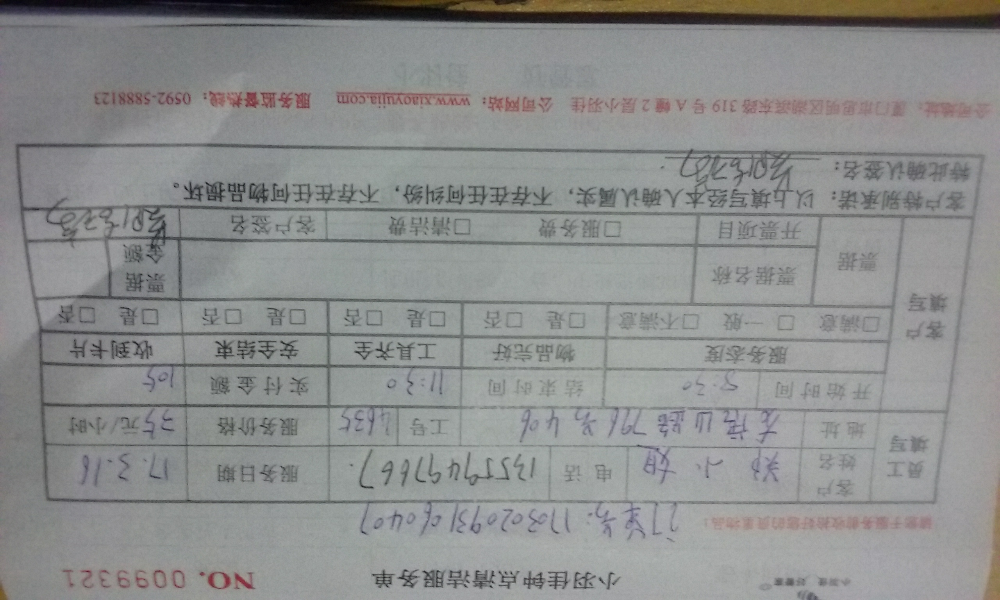 小羽佳 好管家
小羽佳钟点清洁服务单 NO. 0099321
订单号: 1703020931060407
请勿于服务前收拾好您的贵重物品!
员工填写 客户姓名 郑小姐 电话 13559499767. 服务日期 17.3.16
地址 796号406 工号 2635 服务价格 35元/小时
开始时间 8:30 结束时间 11:30 实付金额 105
客户填写 服务态度 物品完好 工具齐全 安全结束 收到卡片
□满意 □一般 □不满意 □是 □否 □是 □否 □是 □否 □是 □否
票据 票据名称 票据金额
开票项目 □服务费 □清洁费 客户签名
客户特别承诺: 以上填写经本人确认属实,不存在任何纠纷,不存在任何物品损坏。
特此确认签名:
公司地址: 厦门市思明区湖滨东路319号A幢2层小羽佳 公司网站: www.xiaoyujia.com 服务监督热线: 0592-5888123